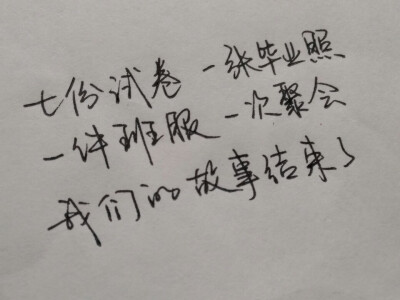 七份试卷 一张毕业照
一件班服 一次聚会
我们的故事结束了